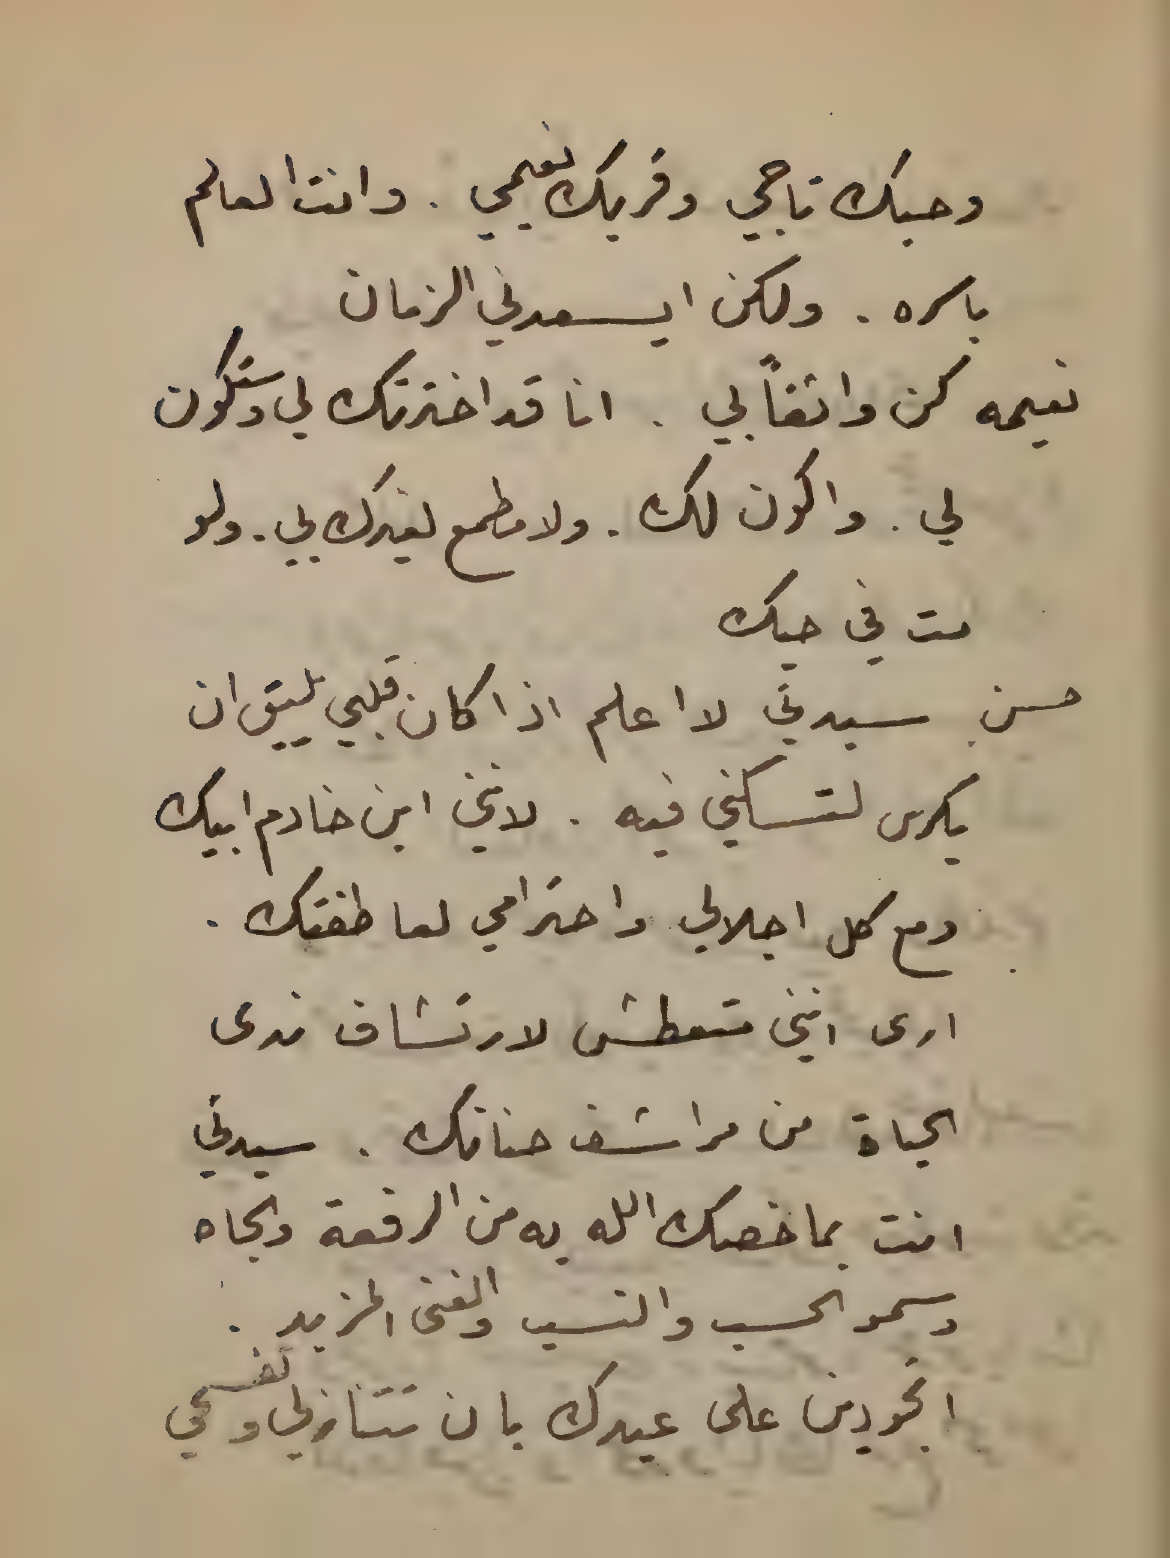 وحبك تاجي وقربك نعيمي . وانت العالم
باسره . ولكن ايسعدني الزمان
نعيمه كن واثقاً بي . انا قد اخترتك لي وستكون
لي . واكون لك . ولا مطمع لغيرك بي . ولو
مت في حبك
حسن سيدتي لا اعلم اذا كان قلبي يليق ان
يكرس لتسكني فيه . لانني ابن خادم ابيك
ومع كل اجلالي واحترامي لعاطفتك .
ارى انني متعطش لارتشاف ندى
الحياة من مراشف حنانك . سيدتي
انت بما خصك الله به من الرفعة والجاه
وسمو الحسب والنسب والغنى المزيد .
اتجودين على عبدك بان تتنازلي وتفسحي